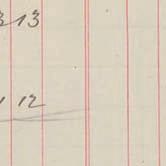 3 13
1 12